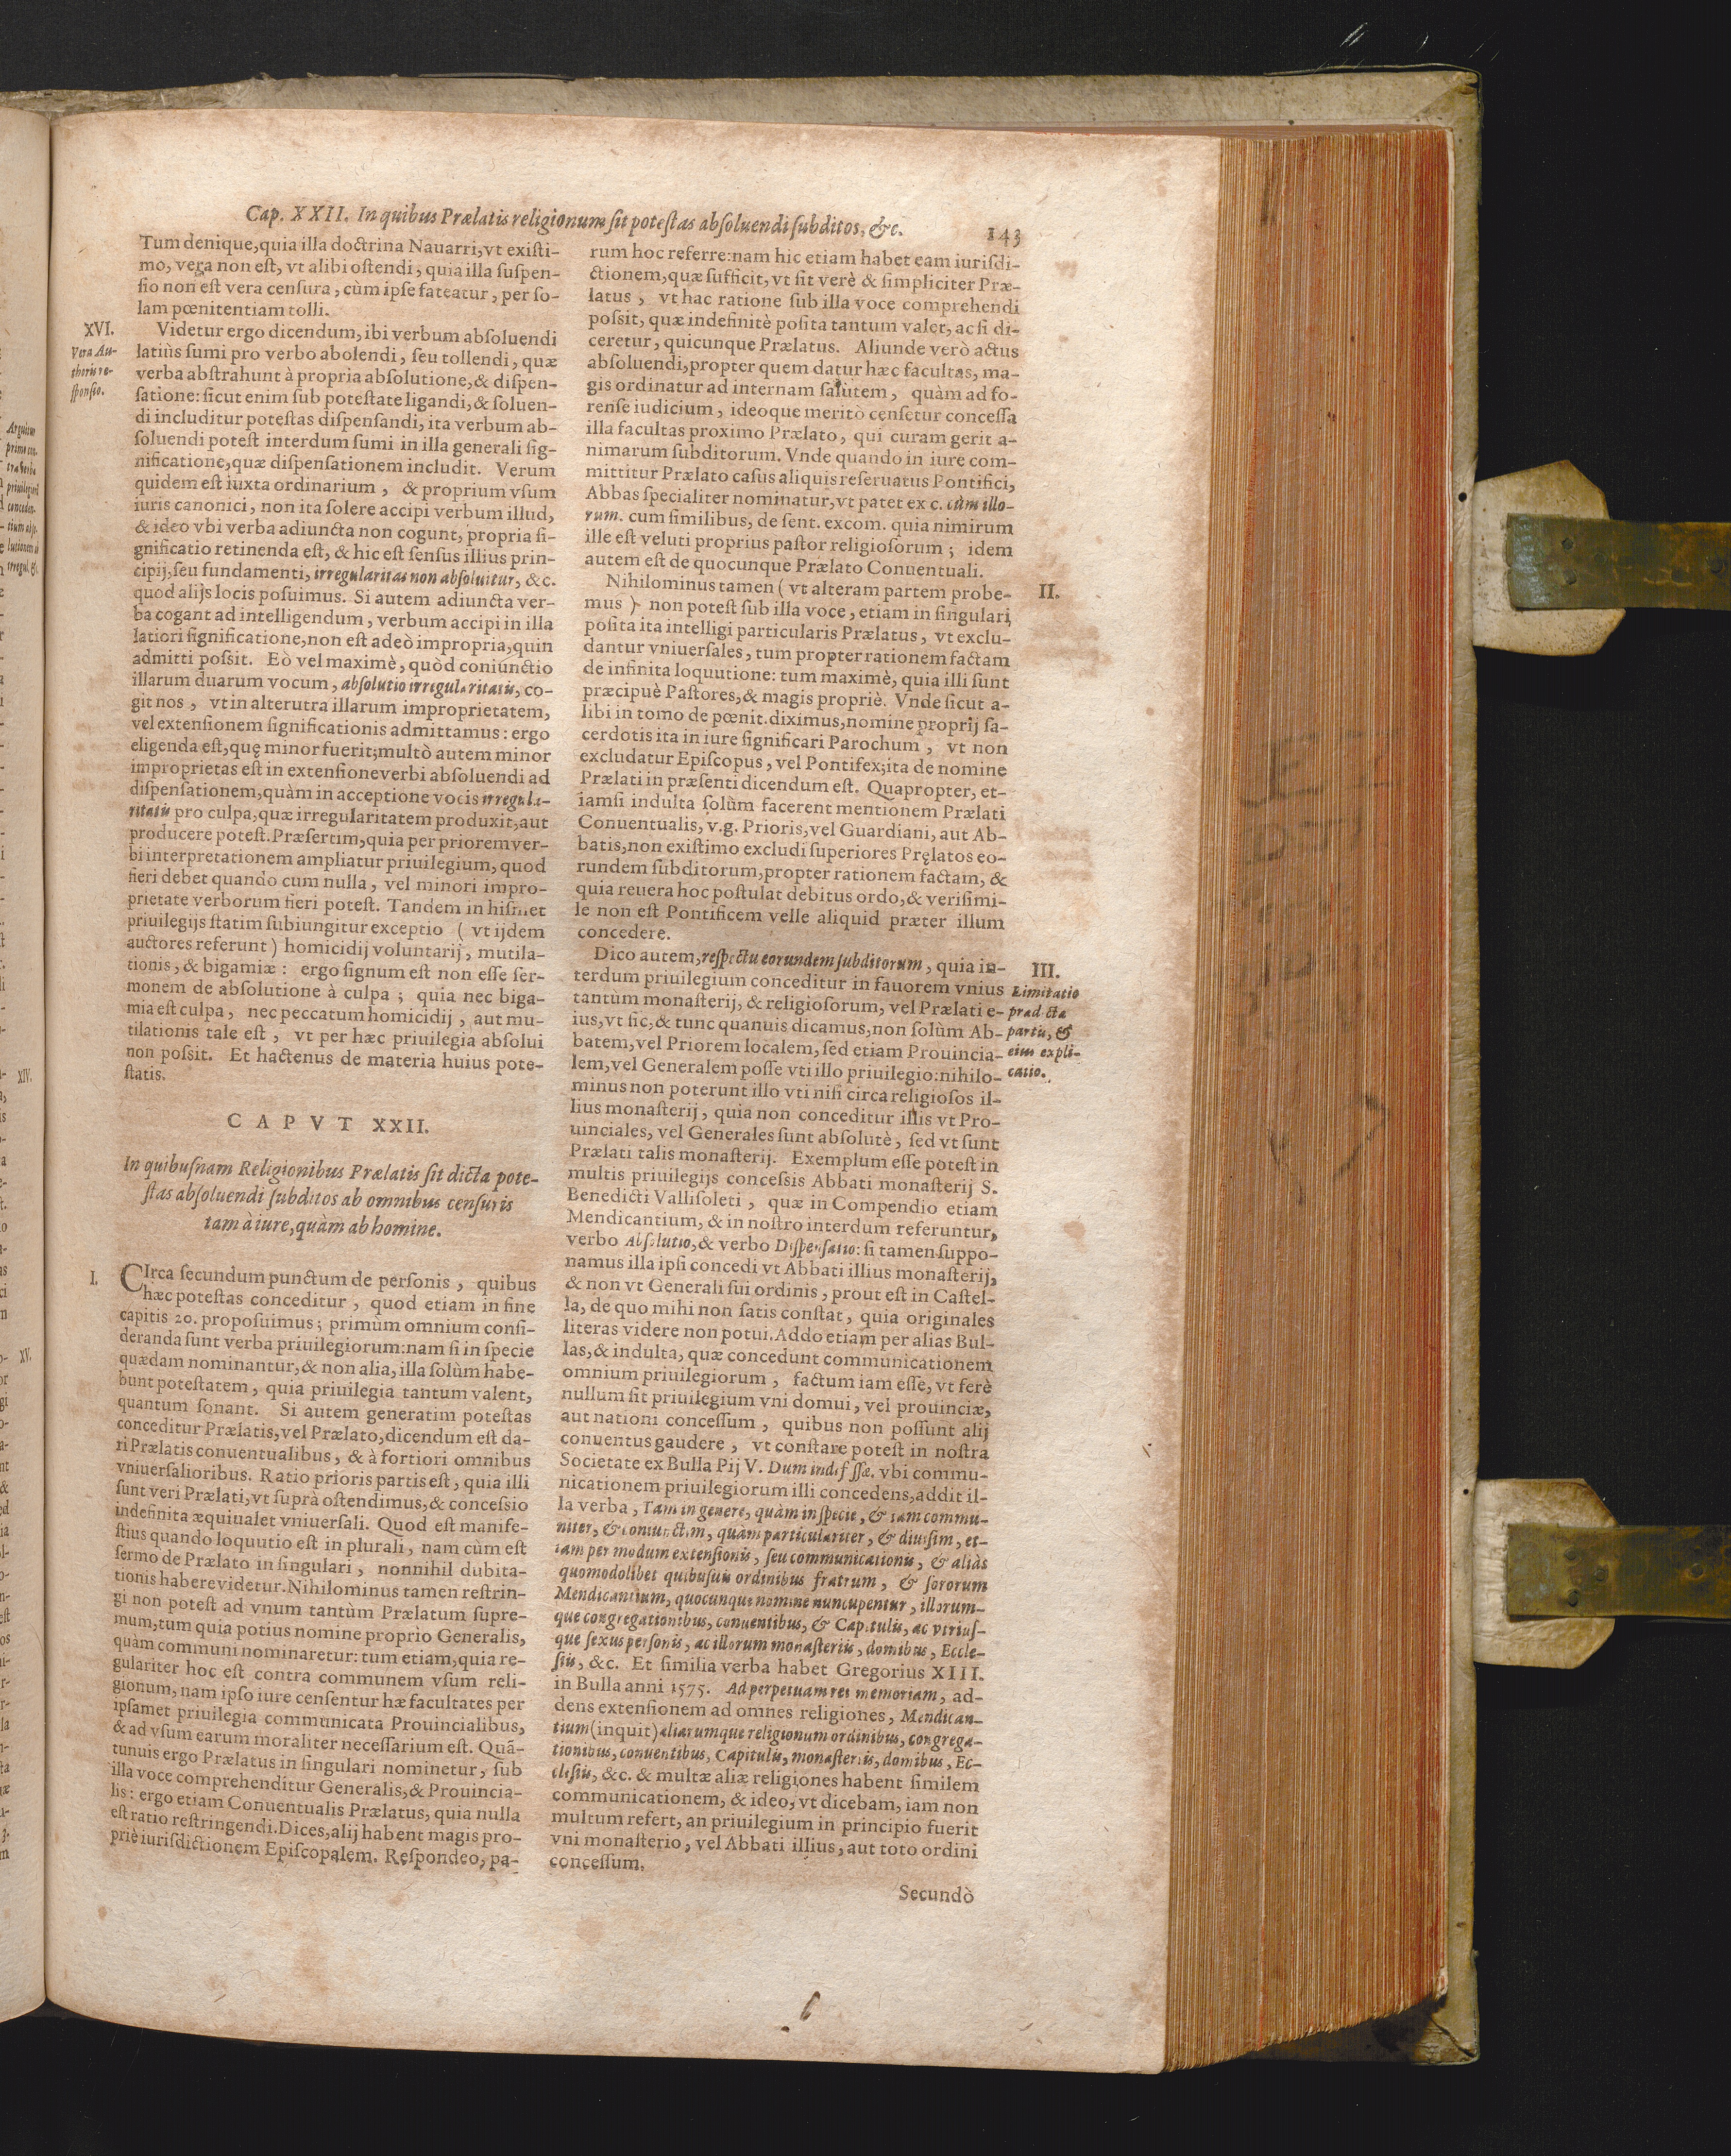 Cap. XXII. In quibus Prælatis religionum sit potestas absoluendi subditos, &c. 143
Tum denique, quia illa doctrina Nauarri, vt existi-
mo, vera non est, vt alibi ostendi, quia illa suspen-
sio non est vera censura, cùm ipse fateatur, per so-
lam pœnitentiam tolli.
XVI.
Vera Au-
thoris re-
sponsio.
Videtur ergo dicendum, ibi verbum absoluendi
latiùs sumi pro verbo abolendi, seu tollendi, quæ
verba abstrahunt à propria absolutione, & dispen-
satione: sicut enim sub potestate ligandi, & soluen-
di includitur potestas dispensandi, ita verbum ab-
soluendi potest interdum sumi in illa generali sig-
nificatione, quæ dispensationem includit. Verum
quidem est iuxta ordinarium, & proprium vsum
iuris canonici, non ita solere accipi verbum illud,
& ideo vbi verba adiuncta non cogunt, propria si-
gnificatio retinenda est, & hic est sensus illius prin-
cipij, seu fundamenti, irregularitas non absoluitur, &c.
quod alijs locis posuimus. Si autem adiuncta ver-
ba cogant ad intelligendum, verbum accipi in illa
latiori significatione, non est adeò impropria, quin
admitti possit. Eò vel maximè, quòd coniunctio
illarum duarum vocum, absolutio irregularitatis, co-
git nos, vt in alterutra illarum improprietatem,
vel extensionem significationis admittamus: ergo
eligenda est, quę minor fuerit; multò autem minor
improprietas est in extensione verbi absoluendi ad
dispensationem, quàm in acceptione vocis irregula-
ritatis pro culpa, quæ irregularitatem produxit, aut
producere potest. Præsertim, quia per priorem ver-
bi interpretationem ampliatur priuilegium, quod
fieri debet quando cum nulla, vel minori impro-
prietate verborum fieri potest. Tandem in hismet
priuilegijs statim subiungitur exceptio (vt ijdem
auctores referunt) homicidij voluntarij, mutila-
tionis, & bigamiæ: ergo signum est non esse ser-
monem de absolutione à culpa; quia nec biga-
mia est culpa, nec peccatum homicidij, aut mu-
tilationis tale est, vt per hæc priuilegia absolui
non possit. Et hactenus de materia huius pote-
statis.
CAPVT XXII.
In quibusnam Religionibus Prælatis sit dicta pote-
stas absoluendi subditos ab omnibus censuris
tam à iure, quàm ab homine.
I.
CIrca secundum punctum de personis, quibus
hæc potestas conceditur, quod etiam in fine
capitis 20. proposuimus; primùm omnium consi-
deranda sunt verba priuilegiorum: nam si in specie
quædam nominantur, & non alia, illa solùm habe-
bunt potestatem, quia priuilegia tantum valent,
quantum sonant. Si autem generatim potestas
conceditur Prælatis, vel Prælato, dicendum est da-
ri Prælatis conuentualibus, & à fortiori omnibus
vniuersalioribus. Ratio prioris partis est, quia illi
sunt veri Prælati, vt suprà ostendimus, & concessio
indefinita æquiualet vniuersali. Quod est manife-
stius quando loquutio est in plurali, nam cùm est
sermo de Prælato in singulari, nonnihil dubita-
tionis habere videtur. Nihilominus tamen restrin-
gi non potest ad vnum tantùm Prælatum supre-
mum, tum quia potius nomine proprio Generalis,
quàm communi nominaretur: tum etiam, quia re-
gulariter hoc est contra communem vsum reli-
gionum, nam ipso iure censentur hæ facultates per
ipsamet priuilegia communicata Prouincialibus,
& ad vsum earum moraliter necessarium est. Quā-
tunuis ergo Prælatus in singulari nominetur, sub
illa voce comprehenditur Generalis, & Prouincia-
lis: ergo etiam Conuentualis Prælatus, quia nulla
est ratio restringendi. Dices, alij habent magis pro-
priè iurisdictionem Episcopalem. Respondeo, pa-
rum hoc referre: nam hic etiam habet eam iurisdi-
ctionem, quæ sufficit, vt sit verè & simpliciter Præ-
latus, vt hac ratione sub illa voce comprehendi
possit, quæ indefinitè posita tantum valet, ac si di-
ceretur, quicunque Prælatus. Aliunde verò actus
absoluendi, propter quem datur hæc facultas, ma-
gis ordinatur ad internam salutem, quàm ad fo-
rense iudicium, ideoque meritò censetur concessa
illa facultas proximo Prælato, qui curam gerit a-
nimarum subditorum. Vnde quando in iure com-
mittitur Prælato casus aliquis reseruatus Pontifici,
Abbas specialiter nominatur, vt patet ex c. cùm illo-
rum. cum similibus, de sent. excom. quia nimirum
ille est veluti proprius pastor religiosorum; idem
autem est de quocunque Prælato Conuentuali.
II.
Nihilominus tamen (vt alteram partem probe-
mus) non potest sub illa voce, etiam in singulari,
posita ita intelligi particularis Prælatus, vt exclu-
dantur vniuersales, tum propter rationem factam
de infinita loquutione: tum maximè, quia illi sunt
præcipuè Pastores, & magis propriè. Vnde sicut a-
libi in tomo de pœnit. diximus, nomine proprij sa-
cerdotis ita in iure significari Parochum, vt non
excludatur Episcopus, vel Pontifex; ita de nomine
Prælati in præsenti dicendum est. Quapropter, et-
iamsi indulta solùm facerent mentionem Prælati
Conuentualis, v.g. Prioris, vel Guardiani, aut Ab-
batis, non existimo excludi superiores Pręlatos eo-
rundem subditorum, propter rationem factam, &
quia reuera hoc postulat debitus ordo, & verisimi-
le non est Pontificem velle aliquid præter illum
concedere.
III.
Limitatio
prædicta
partis, &
eius expli-
catio.
Dico autem, respectu eorundem subditorum, quia in-
terdum priuilegium conceditur in fauorem vnius
tantùm monasterij, & religiosorum, vel Prælati e-
ius, vt sic, & tunc quanuis dicamus, non solùm Ab-
batem, vel Priorem localem, sed etiam Prouincia-
lem, vel Generalem posse vti illo priuilegio: nihilo-
minus non poterunt illo vti nisi circa religiosos il-
lius monasterij, quia non conceditur illis vt Pro-
uinciales, vel Generales sunt absolutè, sed vt sunt
Prælati talis monasterij. Exemplum esse potest in
multis priuilegijs concessis Abbati monasterij S.
Benedicti Vallisoleti, quæ in Compendio etiam
Mendicantium, & in nostro interdum referuntur,
verbo Absolutio, & verbo Dispensatio: si tamen suppo-
namus illa ipsi concedi vt Abbati illius monasterij,
& non vt Generali sui ordinis, prout est in Castel-
la, de quo mihi non satis constat, quia originales
literas videre non potui. Addo etiam per alias Bul-
las, & indulta, quæ concedunt communicationem
omnium priuilegiorum, factum iam esse, vt ferè
nullum sit priuilegium vni domui, vel prouinciæ,
aut nationi concessum, quibus non possunt alij
conuentus gaudere, vt constare potest in nostra
Societate ex Bulla Pij V. Dum indefessæ. vbi commu-
nicationem priuilegiorum illi concedens, addit il-
la verba, Tam in genere, quàm in specie, & tam commu-
niter, & coniunctim, quàm particulariter, & diuisim, et-
iam per modum extensionis, seu communicationis, & aliàs
quomodolibet quibusuis ordinibus fratrum, & sororum
Mendicantium, quocunque nomine nuncupentur, illorum-
que congregationibus, conuentibus, & Capitulis, ac vtrius-
que sexus personis, ac illorum monasteriis, domibus, Eccle-
siis, &c. Et similia verba habet Gregorius XIII.
in Bulla anni 1575. Ad perpetuam rei memoriam, ad-
dens extensionem ad omnes religiones, Mendican-
tium (inquit) aliarumque religionum ordinibus, congrega-
tionibus, conuentibus, Capitulis, monasteriis, domibus, Ec-
clesiis, &c. & multæ aliæ religiones habent similem
communicationem, & ideo, vt dicebam, iam non
multum refert, an priuilegium in principio fuerit
vni monasterio, vel Abbati illius, aut toto ordini
concessum.
Secundò